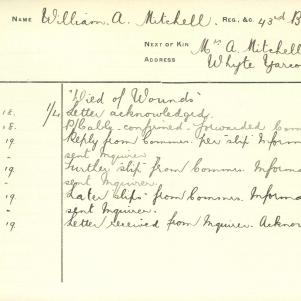 NAME William. A. Mitchell. REG., &C. 43rd B
NEXT OF KIN Mrs A. Mitchell
ADDRESS Whyte Yarco
"Died of Wounds"
18. 1/4 Letter acknowledged.
18. P/Cable - confirmed - forwarded Com
19 Reply from Commrs. per "slip" Inform
" sent Inquirer.
19. Further "slip" from Commrs. Informa
" sent Inquirer.
19. Later "slips" from Commrs. Informa
" sent Inquirer.
19 Letter received from Inquirer. Acknow